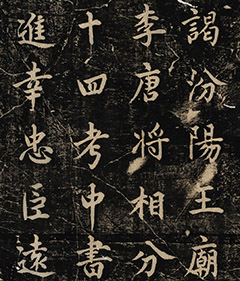 謁汾陽王廟
李唐将相分
十四考中書
進幸忠臣遠